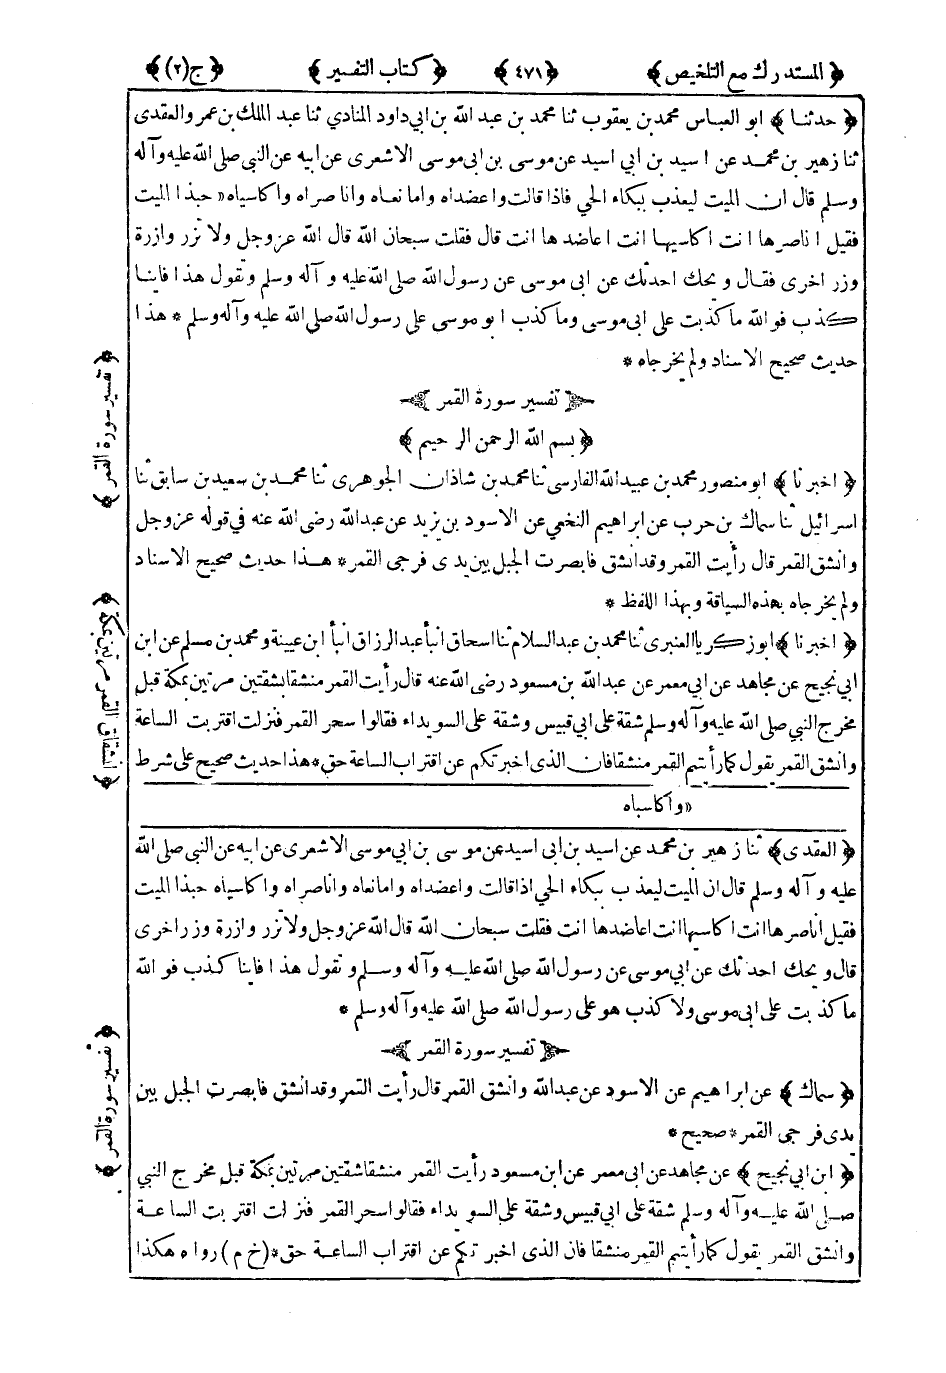 ﴿ المستدرك مع التلخيص ﴾ ﴿ ٤٧١ ﴾ ﴿ كتاب التفسير ﴾ ﴿ ج (٢) ﴾
﴿ حدثنا ﴾ ابو العباس محمد بن يعقوب ثنا محمد بن عبد الله بن ابي داود المنادي ثنا عبد الملك بن عمر والعقدى
ثنا زهير بن محمد عن اسيد بن ابي اسيد عن موسى بن ابى موسى الاشعرى عن ابيه عن النبى صلى الله عليه وآله
وسلم قال ان الميت ليعذب ببكاء الحي فاذا قالت واعضداه وامانعاه واناصراه واكاسياه« حبذا الميت
فقيل اناصرها انت اكاسيها انت اعاضدها انت قال فقلت سبحان الله قال الله عز وجل ولا تزر وازرة
وزر اخرى فقال ويحك احدثك عن ابى موسى عن رسول الله صلى الله عليه وآله وسلم وتقول هذا فاينا
كذب فو الله ما كذبت على ابى موسى وما كذب ابو موسى على رسول الله صلى الله عليه وآله وسلم * هذا
حديث صحيح الاسناد ولم يخرجاه *
تفسير سورة القمر
﴿ بسم الله الرحمن الرحيم ﴾
﴿ اخبرنا ﴾ ابو منصور محمد بن عبيد الله الفارسى ثنا محمد بن شاذان الجوهرى ثنا محمد بن سعيد بن سابق ثنا
اسرائيل ثنا سماك بن حرب عن ابراهيم النخعى عن الاسود بن يزيد عن عبد الله رضى الله عنه في قوله عز وجل
وانشق القمر قال رأيت القمر وقد انشق فابصرت الجبل بين يدى فرجى القمر * هذا حديث صحيح الاسناد
ولم يخرجاه بهذه السياقة وبهذا اللفظ *
﴿ اخبرنا ﴾ ابو زكريا العنبرى ثنا محمد بن عبد السلام ثنا اسحاق انبأ عبد الرزاق انبأ ابن عيينة ومحمد بن مسلم عن ابن
ابي نجيح عن مجاهد عن ابي معمر عن عبد الله بن مسعود رضى الله عنه قال رأيت القمر منشقا بشقتين مرتين بمكة قبل
مخرج النبي صلى الله عليه وآله وسلم شقة على ابي قبيس وشقة على السويداء فقالوا سحر القمر فنزلت اقتربت الساعة
وانشق القمر يقول كما رأيتم القمر منشقا فان الذى اخبرتكم عن اقتراب الساعة حق * هذا حديث صحيح على شرط
« واكاسباه
﴿ العقدى ﴾ ثنا زهير بن محمد عن اسيد بن ابى اسيد عن موسى بن ابي موسى الاشعرى عن ابيه عن النبى صلى الله
عليه وآله وسلم قال ان الميت ليعذب ببكاء الحي اذا قالت واعضداه وامانعاه واناصراه واكاسياه حبذا الميت
فقيل أناصرها انت اكاسيها انت اعاضدها انت فقلت سبحان الله قال الله عز وجل ولا تزر وازرة وزر اخرى
قال ويحك احدثك عن ابي موسى عن رسول الله صلى الله عليه وآله وسلم وتقول هذا فاينا كذب فو الله
ما كذبت على ابى موسى ولا كذب هو على رسول الله صلى الله عليه وآله وسلم *
تفسير سورة القمر
﴿ سماك ﴾ عن ابراهيم عن الاسود عن عبد الله وانشق القمر قال رأيت القمر وقد انشق فابصرت الجبل بين
يدى فرجى القمر * صحيح *
﴿ ابن ابي نجيح ﴾ عن مجاهد عن ابى معمر عن ابن مسعود رأيت القمر منشقا شقتين مرتين بمكة قبل مخرج النبي
صلى الله عليه وآله وسلم شقة على ابي قبيس وشقة على السويداء فقالوا سحر القمر فنزلت اقتربت الساعة
وانشق القمر يقول كما رأيتم القمر منشقا فان الذى اخبرتكم عن اقتراب الساعة حق * (خ م) رواه هكذا
﴿ تفسير سورة القمر ﴾
﴿ انشقاق القمر مرتين بمكة ﴾
﴿ تفسير سورة القمر ﴾